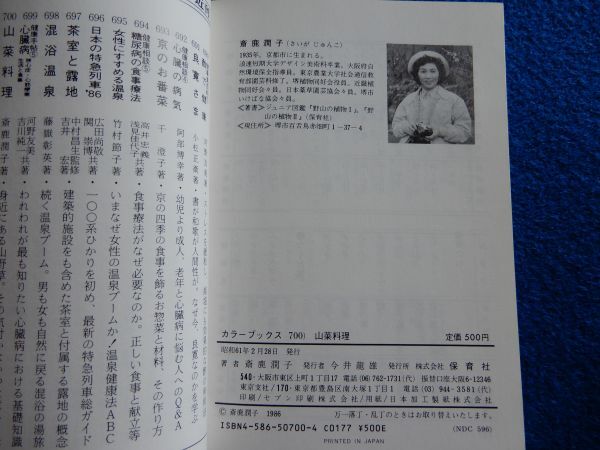 斎鹿潤子（さいが じゅんこ）
1935年，京都市に生まれる。
浪速短期大学デザイン美術科卒業。大阪府自
然環境保全指導員。東京農業大学社会通信教
育部園芸科修了。堺植物同好会会員、近畿植
物同好会会員、日本薬草園芸協会会員、堺市
いけばな協会会員。
〈著書〉ジュニア図鑑「野山の植物Ⅰ」，「野山
の植物Ⅱ」（保育社）
〈現住所〉堺市百舌鳥赤畑町1－37－4
カラーブックス 700） 山菜料理
定価 500円
昭和61年2月28日 発行
著者 斎鹿潤子 発行者 今井龍雄 発行所 株式会社 保育社
540・大阪市東区上町1丁目17 電話 (06)762-1731(代) 振替口座大阪6-12346
東京支社/170・東京都豊島区南大塚1丁目1 電話 (03)944-3581(代)
印刷/セブン印刷株式会社/用紙/日本加工製紙株式会社
© 斎鹿潤子 1986
万一落丁・乱丁のときはお取り替えいたします。
ISBN4-586-50700-4 C0177 ¥500E
(NDC 596)
PRINTED IN JAPAN
692 健康相談④ 心臓の病気
阿部博幸著・幼児より成人、老年と心臓病に悩む人へのQ&A
693 京のお番菜
千 澄子著・京の四季の食事を飾るお惣菜と材料、その作り方
694 健康相談⑤ 糖尿病の食事療法
高井宏義
浅見佳代子共著・食事療法がなぜ必要なのか。正しい食事と献立等
695 女性にすすめる温泉
竹村節子著・いまなぜ女性の温泉ブームか！温泉健康法ABC
696 日本の特急列車'86
広田尚敬
関 崇博共著・一〇〇系ひかりを初め、最新の特急列車総ガイド
697 茶室と露地
中村昌生監修
吉井 宏著・建築的施設をも含めた茶室と付属する露地の概念
698 混浴温泉
藤嶽彰英著・続く温泉ブーム。男も女も自然に戻る混浴の湯旅
河野友美
吉川純一共著・われわれが最も知りたい心臓病における基礎知識
700 山菜料理
斎鹿潤子著・身近にある山野草。その